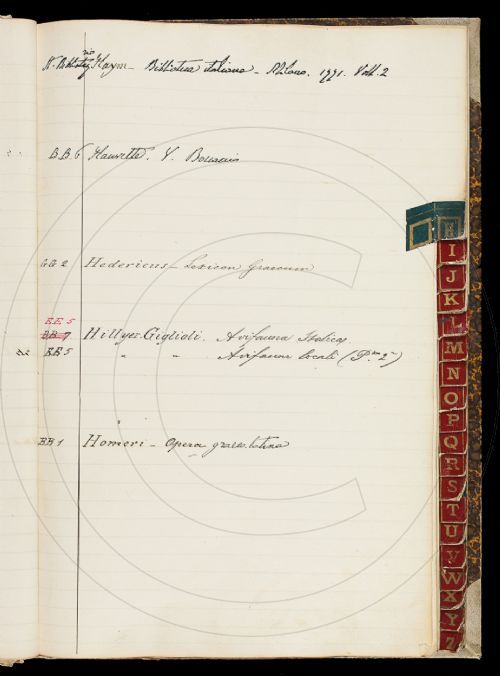 Haym - Biblioteca italiana - Milano. 1771. Voll. 2
B.B. 6 Hauvette. V. Bourcais
GG 2 Hedericus - Lexicon Graecum
EE 5
BB 7 Hillyer Giglioli. Avifauna Italica
EE 5 " " Avifaune locali (P.te 2a)
BB 1 Homeri - Opera graec. latine
H
I
J
K
L
M
N
O
P
Q
R
S
T
U
V
W
X
Y
Z